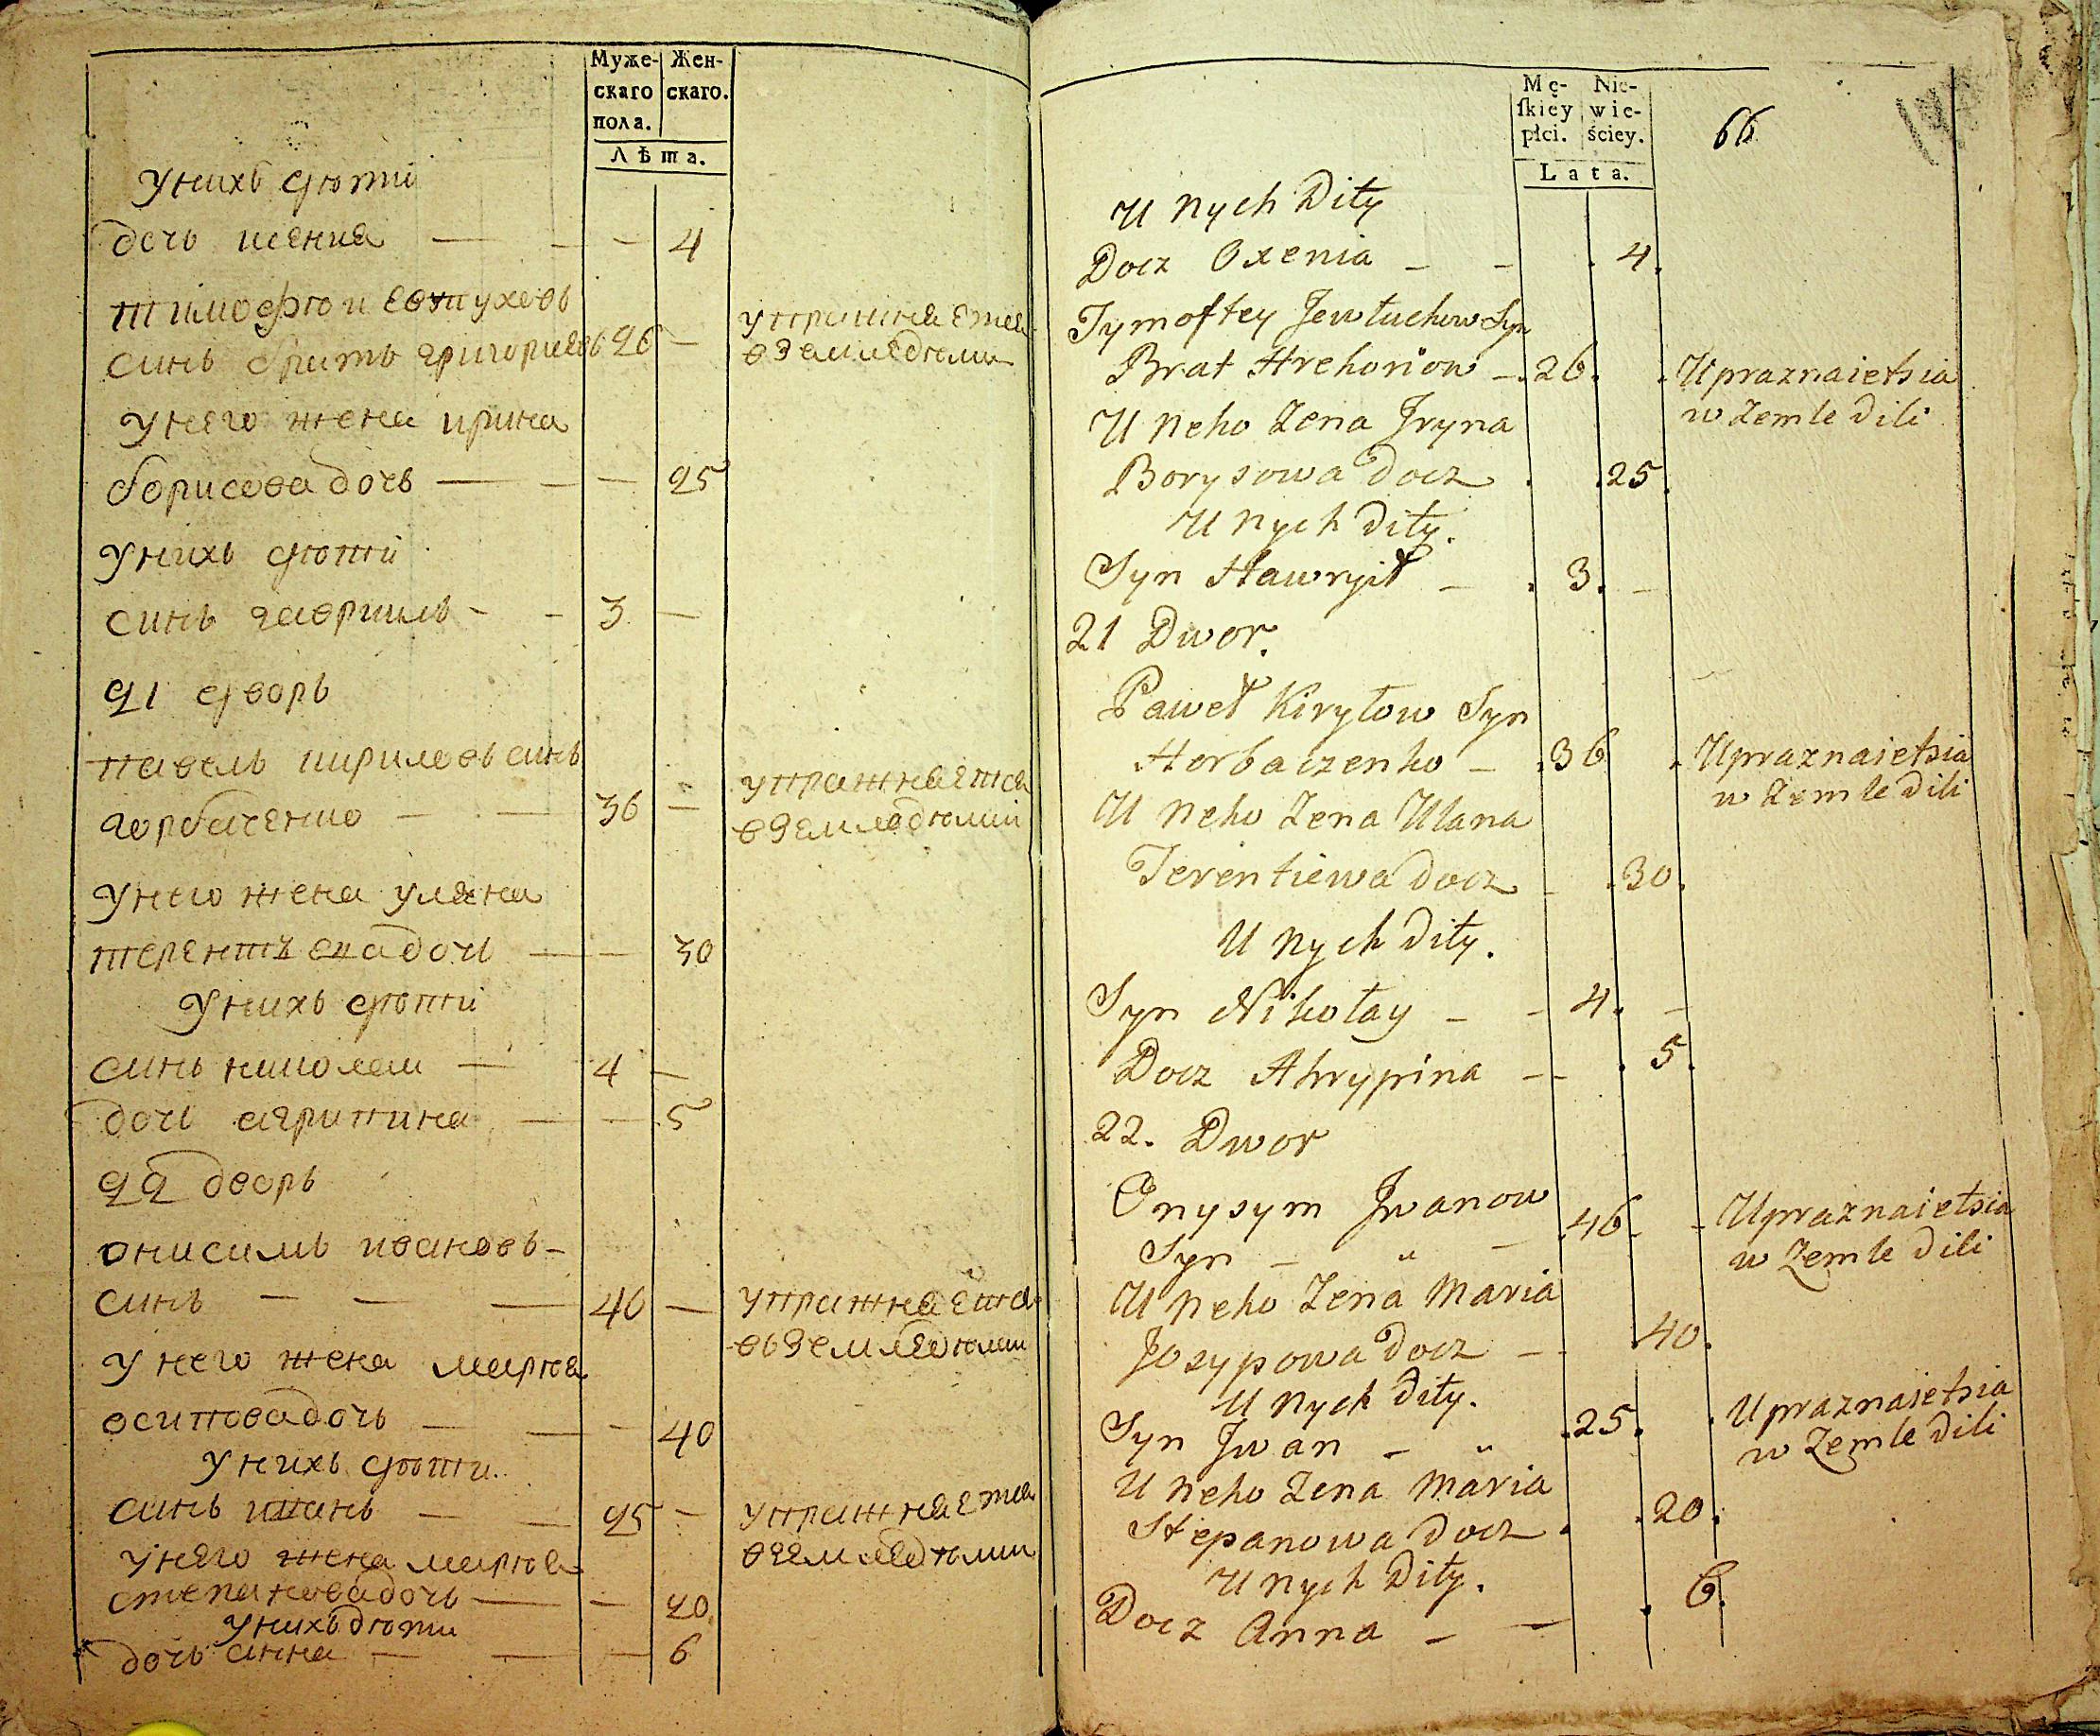 Муже-
скаго
пола.
Жен-
скаго.
Лѣта.
У нихъ дѣти
дочь ксения — — — 4
тимофѣи евтуховъ
синъ братъ григориевъ 26 —
упражняется
в землѣдѣлии
У него жена ирина
борисова дочь — — — 25
У нихъ дѣти
синъ гавриилъ - - 3 —
21 дворъ
павелъ кириловъ синъ
горбаченко — — 36 —
упражняется
в земледѣлии
У него жена уляна
терентъева дочь — — 30
У нихъ дѣти
синъ николаи — 4 —
дочь агрипина — — 5
22 дворъ
онисимъ ивановъ -
синъ — — — 46 —
упражняется
въ земледѣлии
У него жена мария
осипова дочь — — — 40
У нихъ дѣти
синъ иванъ — — 25 —
упражняется
в земледѣлии
У него жена мария
степанова дочь — — 20
У нихъ дѣти
дочь анна — — — 6
Mę-
ſkiey
płci.
Nie-
wie-
ściey.
Lata.
66
U Nych Dity
Docz Oxenia — - . 4.
Tymoftey Jewtuchow Syn
Brat Hrehoriow — .26.
. Upraznaietsia
w Zemle dili
U Neho Zena Jryna
Borysowa docz . .25.
U Nych dity.
Syn Hawryił — . 3. —
21 Dwor.
Paweł Kiryłow Syn
Horbaczenko — .36
. Upraznaietsia
w Zemle dili
U Neho Zena Ulana
Terentiewa docz — .30.
U Nych dity.
Syn Nikołay — - 4. —
Docz Ahrypina — - . 5.
22. Dwor
Onysym Jwanow
Syn — " — .46-
- Upraznaietsia
w Zemle dili
U Neho Zena Maria
Josypowa docz — - .40.
U Nych dity.
Syn Jwan — " .25.
. Upraznaietsia
w Zemle dili
U Neho Zena Maria
Stepanowa docz . .20.
U Nych Dity.
Docz Anna — — . 6.